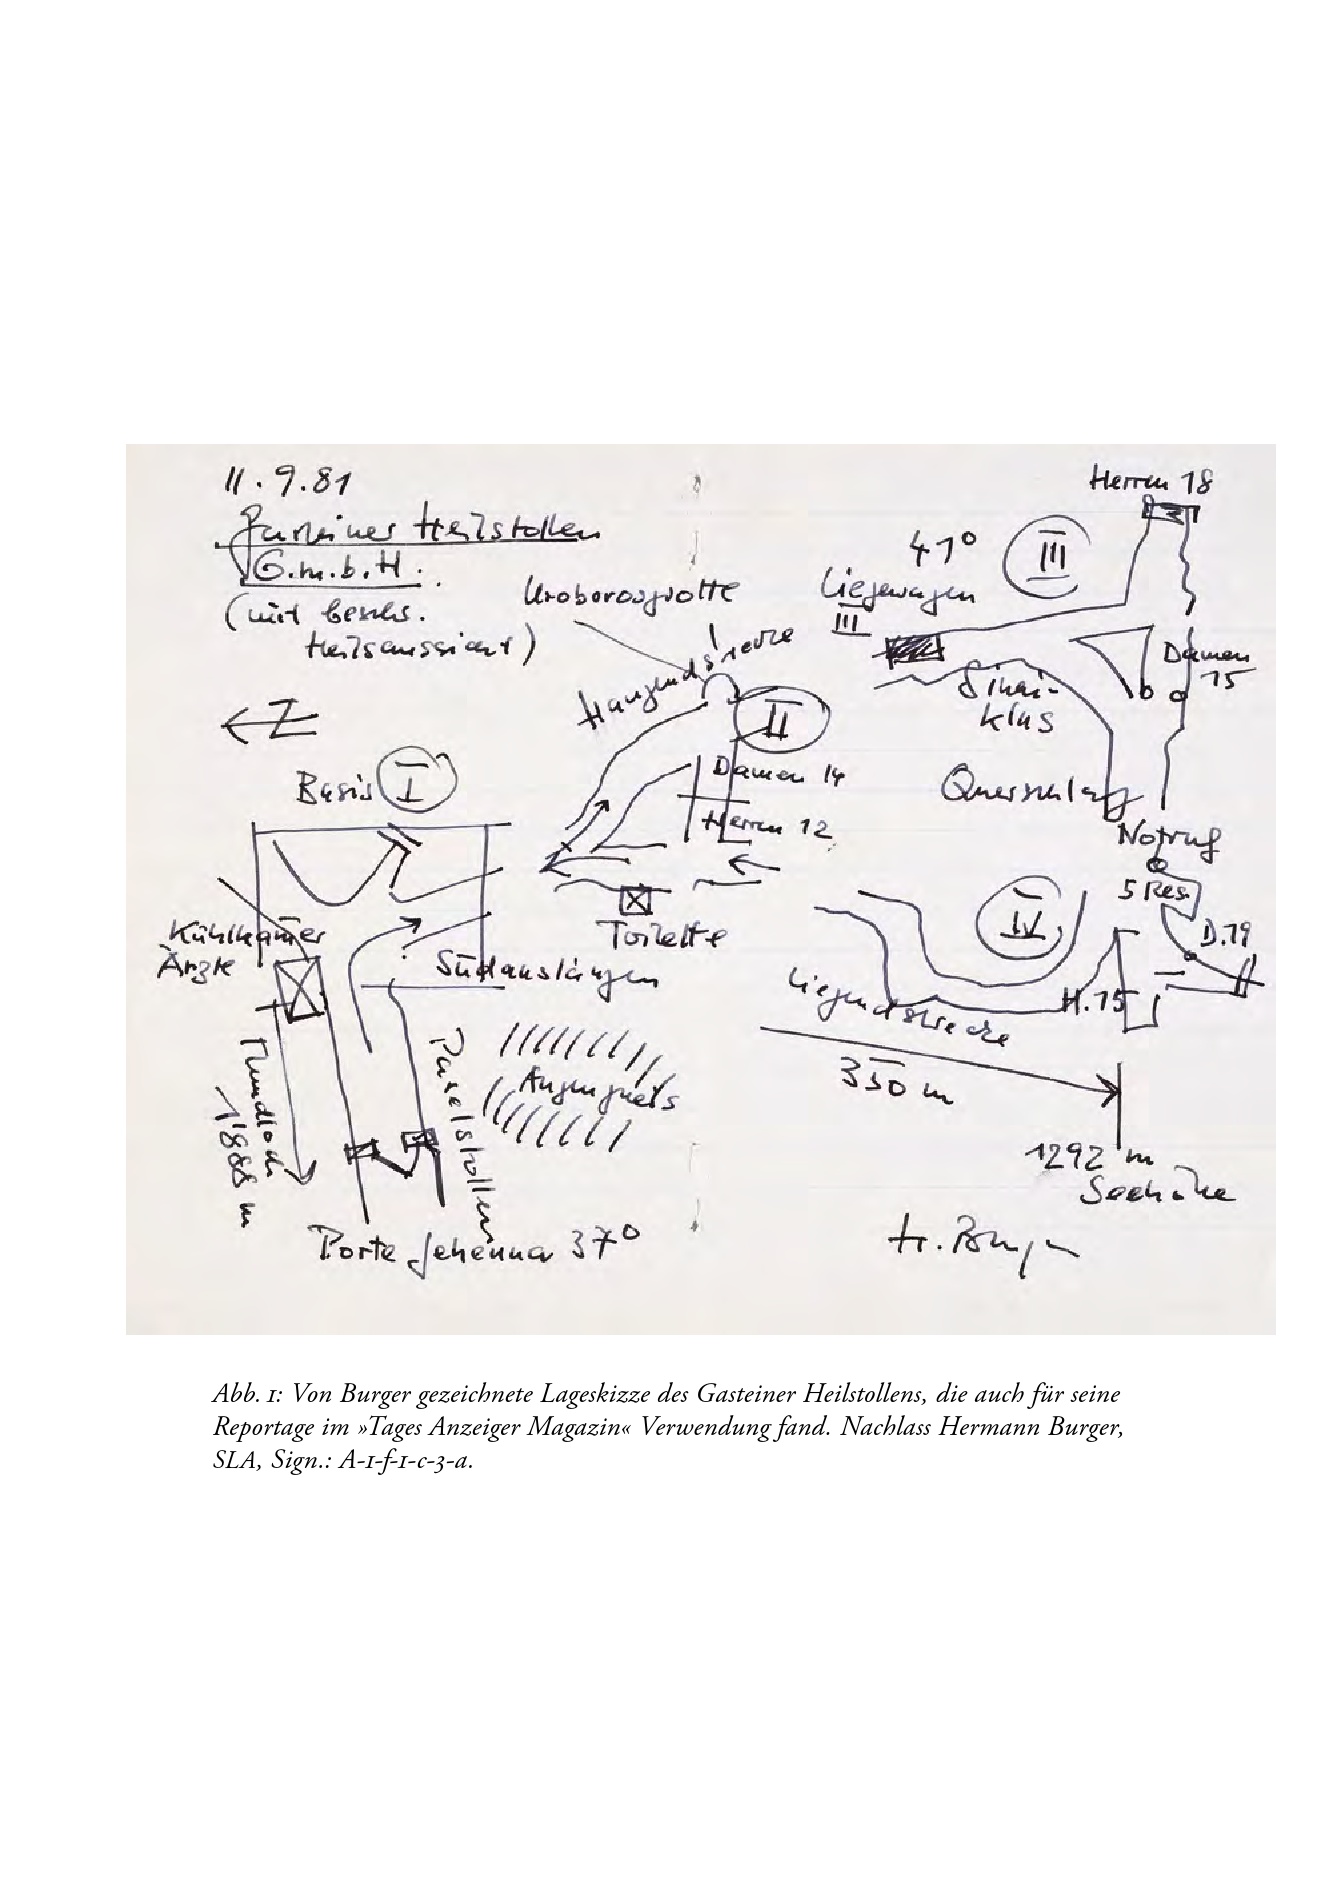 11.9.81
Gasteiner Heilstollen
G.m.b.H.
(mit beschr.
Heilsaussicht)
Uroborosgrotte
Hangendstrecke
II
Damen 14
Herren 12
Toilette
Z
Basis I
Kühlkammer
Ärzte
Südauslängen
Mundloch
1888 m
Paselstollen
Augengneis
Porte Jehenna 37°
Herren 18
41° III
Liegewagen
III
Damen
15
Querschlag
Notruf
5 Res.
IV
D.19
H.15
Liegendstrecke
350 m
1292 m
Seehöhe
H. Burger
Abb. 1: Von Burger gezeichnete Lageskizze des Gasteiner Heilstollens, die auch für seine
Reportage im »Tages Anzeiger Magazin« Verwendung fand. Nachlass Hermann Burger,
SLA, Sign.: A-1-f-1-c-3-a.